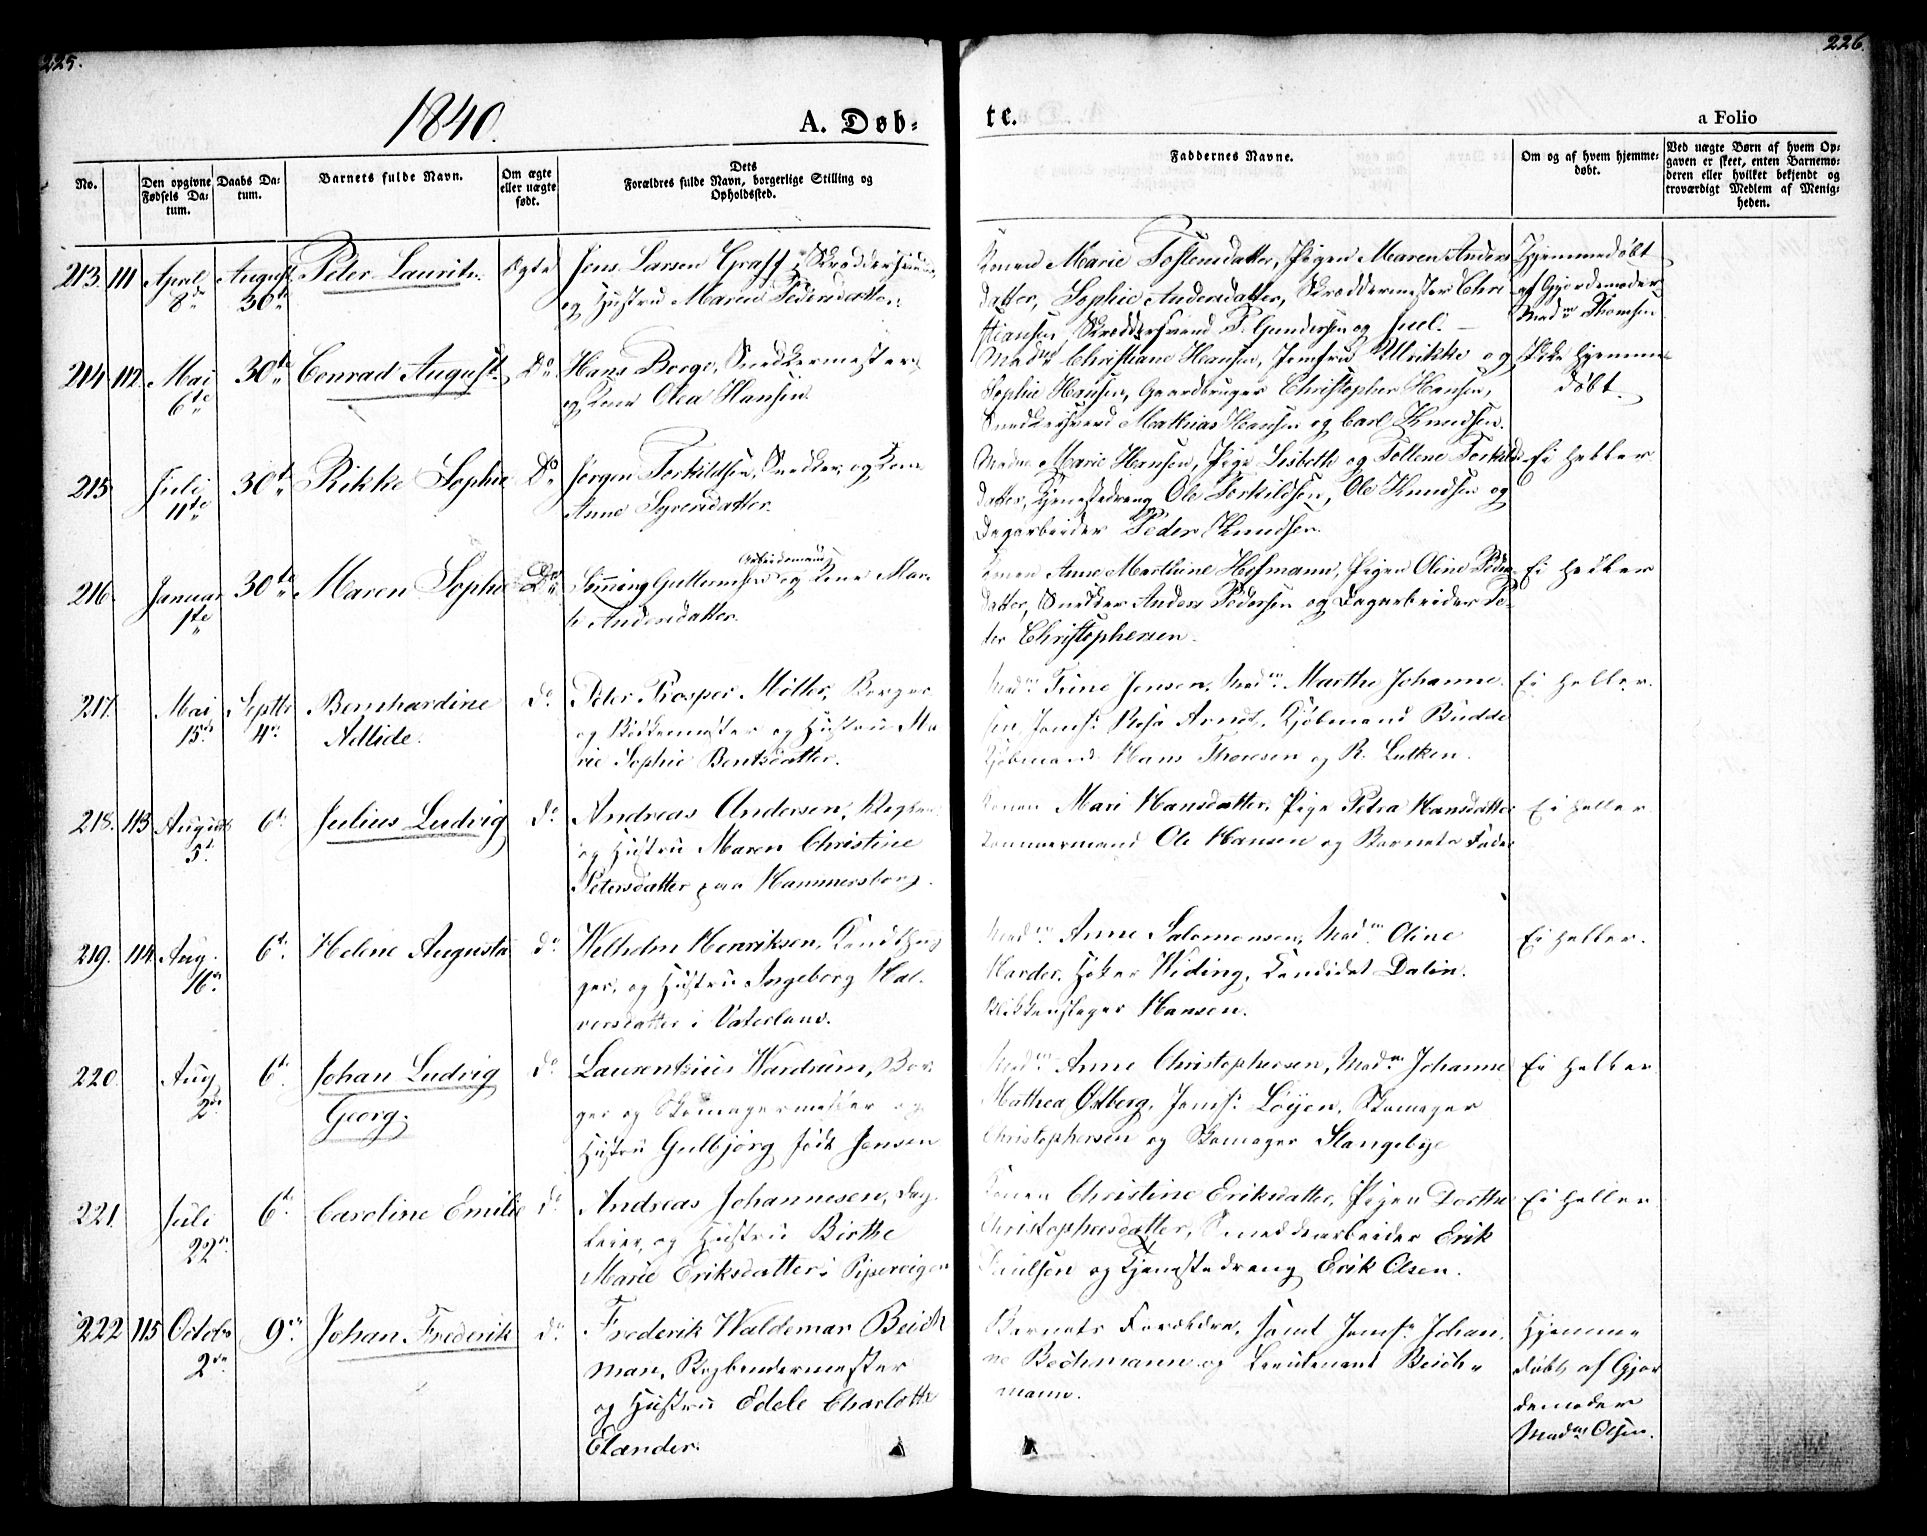 225.
1840.
A. Døb-
No.
Den opgivne Fødsels Da-
tum.
Daabs Da-
tum.
Barnets fulde Navn.
Om ægte
eller uægte
født.
Dets
Forældres fulde Navn, borgerlige Stilling og
Opholdssted.
213. 111 April 8de August 30te Peter Laurits. Ægte
Jens Larsen Graff, Skræddersvend,
og Hustru Maren Pedersdatter.
214 112 Mai 6te 30te Conrad August. Do
Hans Borge, Snedkermester
og Kone Olea Hansen.
215 Juli 11te 30te Rikke Sophie Do
Jørgen Torkildsen, Snedker og Kone
Anne Syversdatter.
216 Januar 1te 30te Maren Sophie Do
Arbeidsmand
Guttormsen og Kone Mar-
the Andersdatter.
217. Mai 15de Septbr 4de Bernhardine
Atlide. do
Peter Prosper Møller, Borger
og Hustru Ma-
rie Sophie Bentsdatter.
218. 113 August 5t 6te Julius Ludvig do
Andreas Andersen,
og Hustru Maren Christine
Petersdatter paa Hammersborg.
219. 114 Aug. 16de 6te Helene Augusta do
Wilhelm Henriksen,
og Hustru Ingeborg Hal-
vorsdatter i Vaterland.
220. Aug 2de 6te Johan Ludvig
Georg. do
Laurentzius Wardrum, Bor-
ger og Skomagermester og
Hustru Gulbjørg født Jensen
221. Juli 22de 6te Caroline Emilie do
Andreas Johannesen, Dag-
leier, og Hustru Birthe
Marie Eriksdatter i Pipervigen
222 115 Octobr 2de 9de Johan Frederik do
Frederik Waldemar Beich-
man, Bogbindermester
og Hustru Edele Charlotte
Elander.
226.
te.
a Folio
Faddernes Navne.
Om og af hvem hjemme-
døbt.
Ved uægte Børn af hvem Op-
gaven er skeet, enten Barnemo-
deren eller hvilket bekjendt og
troværdigt Medlem af Menig-
heden.
Konen Marie Tostensdatter, Pigen Maren Anders-
datter, Sophie Andersdatter, Skræddermester Chri-
stiansen, Skræddersvend P. Gundersen og Juel.
Hjemmedøbt
af Gjordemoder
Madm Thomsen
Madm Christiane Hansen, Jomfru Ulrikke og
Sophie Hansen, Gaardbruger Christopher Hansen,
Snedkersvend Mathias Hansen og Carl Knudsen.
Ikke hjemme-
døbt.
Madm Marie Hansen, Pige Lisbeth og Tollene Torkilds-
datter, Tjenestedreng Ole Torkildsen, Ole Knudsen og
Dagarbeider Peder Knudsen.
Ei heller
Konen Anne Marthine Hofmann, Pigen Oline Peders-
datter, Snedker Anders Pedersen og Dagarbeider Pe-
ter Christophersen.
Ei heller
Madm Trine Jensen, Madm Marthe Johanne-
sen, Jomfr Rosa Arndt, Kjøbmand Budde
Kjøbmand Hans Thoresen og R. Lutken.
Ei heller.
Konen Mari Hansdatter, Pige Petra Hansdatter
Tømmermand Ole Hansen og Barnets Fader
Ei heller
Madm Anne Salomonsen, Madm Oline
Harder, Høker Widing, Candidat Dalin.
Blikkenslager Hansen.
Ei heller.
Madm Anne Christophersen, Madm Johanne
Mathea Østberg, Jomfr Løijen, Skomager
Christophersen og Skomager Slangebye
Ei heller
Konen Christine Eriksdatter, Pigen Dorthe
Christophersdatter, Smedearbeider Erik
Paulsen og Tjenestedreng Erik Olsen.
Ei heller
Barnets Forældre, samt Jomfr Johan-
ne Bechmann og Lieutenant Beich-
mann.
Hjemme-
døbt af Gjor-
demoder
Madm Olsen.